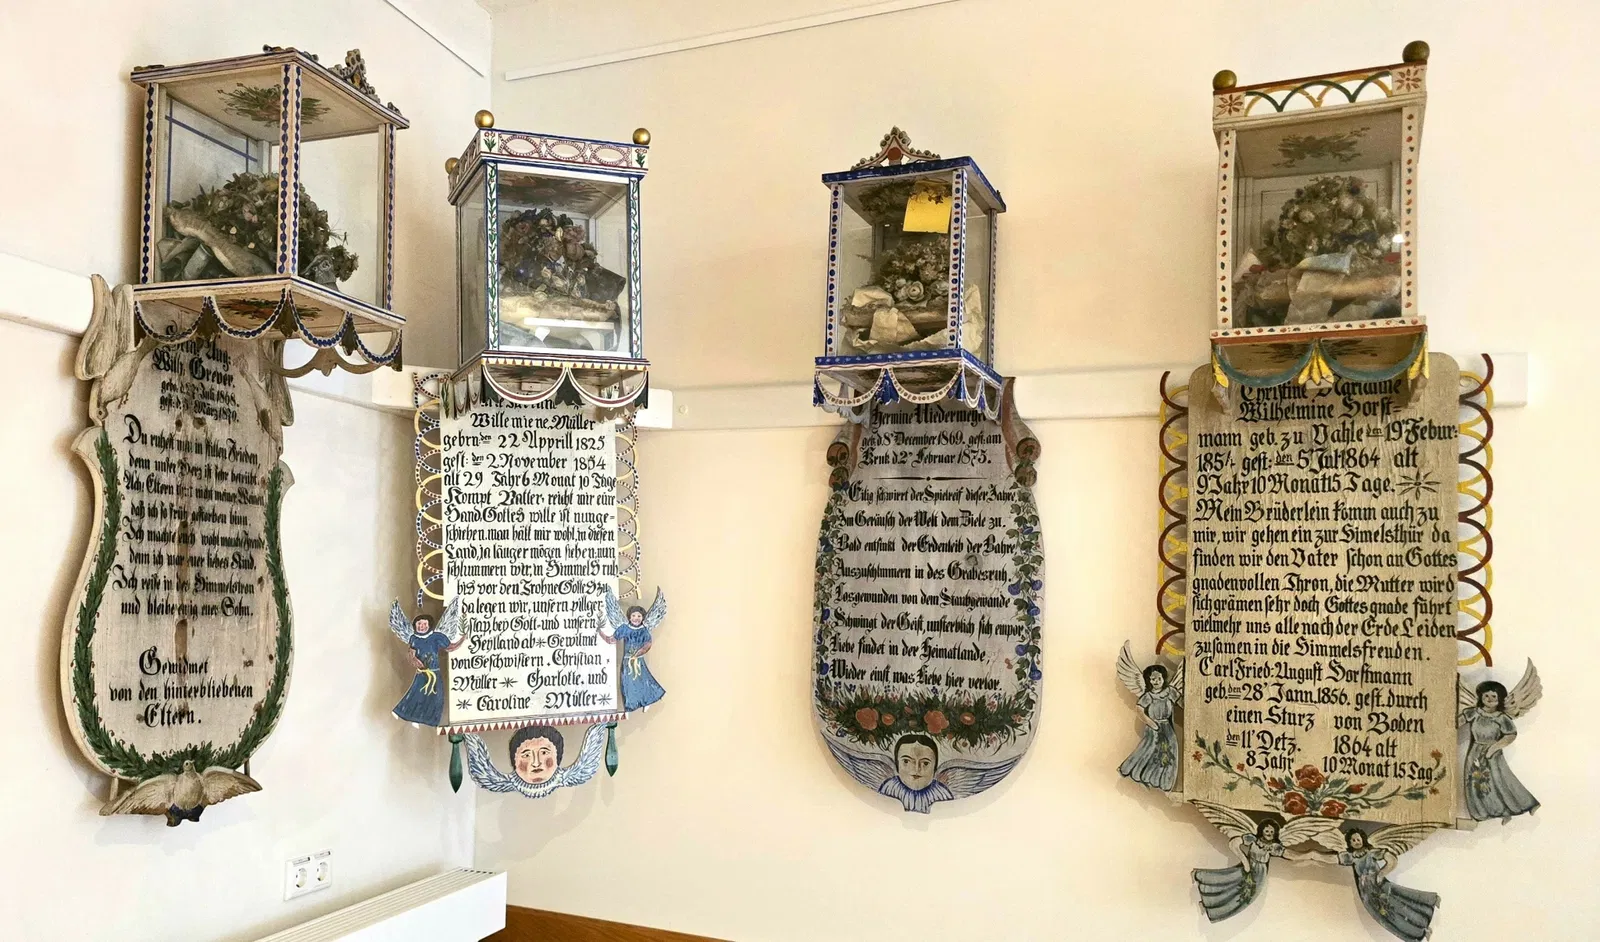 Wilh. Grever.
Du ruhest nun in stillen Frieden,
denn unser Herz ist sehr betrübt.
Ach Eltern nicht meinet Weinet
daß ich so früh gestorben binn.
Ich machte euch wohl manche Freud
denn ich war euer liebes Kind.
Ich reise in des Himmelsthron
und bleibe ewig euer Sohn.
Gewidmet
von den hinterbliebenen
Eltern.
Wille mie ne. Müller
gebrn: den 22 Apprill 1825
gest: den 2. November 1854
alt 29 Jahr 6 Monat 10 Tage
Kompt Vatter reicht mir eure
Hand, Gottes wille ist nunge-
schieben, man hält mir wohl, in diesen
Land, ja länger mögen siehen, nun
schlummern wir, in Himmels ruh
bis vor den Trohne Gottes zu
da legen wir, unsern pillger
stay, bey Gott und unsern
Heylland ab ✳ Gewitmet
von Geschwistern. Christian,
Müller ✳ Garlotte. und
✳ Caroline Müller ✳
Hermine Niedermeyer
geb. d. 8t Dezember 1869. gest. am
d. 2t Februar 1875.
Eilig schwirrt der Spielreif dieser Jahre,
Im Geräusch der Welt dem Ziele zu.
Bald entsinkt der Erdenleib der Bahre,
Auszuschlummern in des Grabesruh.
Losgewunden von dem Staubgewande
Schwingt der Geist, unsterblich sich empor,
Liebe findet in der Heimatlande,
Wieder einst was Liebe hier verlor.
Christine Marianne
Wilhelmine Horst-
mann geb. zu Vahle den 19t Febur:
185 gest: den 5t Jul 1864 alt
9 Jahr 10 Monat 15 Tage.
Mein Brüderlein komm auch zu
mir, wir gehen ein zur Himelsthür da
finden wir den Vater schon an Gottes
gnadenvollen Thron, die Mutter wird
sich grämen sehr doch Gottes gnade führt
vielmehr uns alle nach der Erde Leiden
zusamen in die Himmelsfreuden.
Carl Fried: August Horstmann
geb. den 28t Jann. 1856. gest. durch
einen Sturz von Boden
den 11t Detz. 1864 alt
8 Jahr 10 Monat 15 Tag.